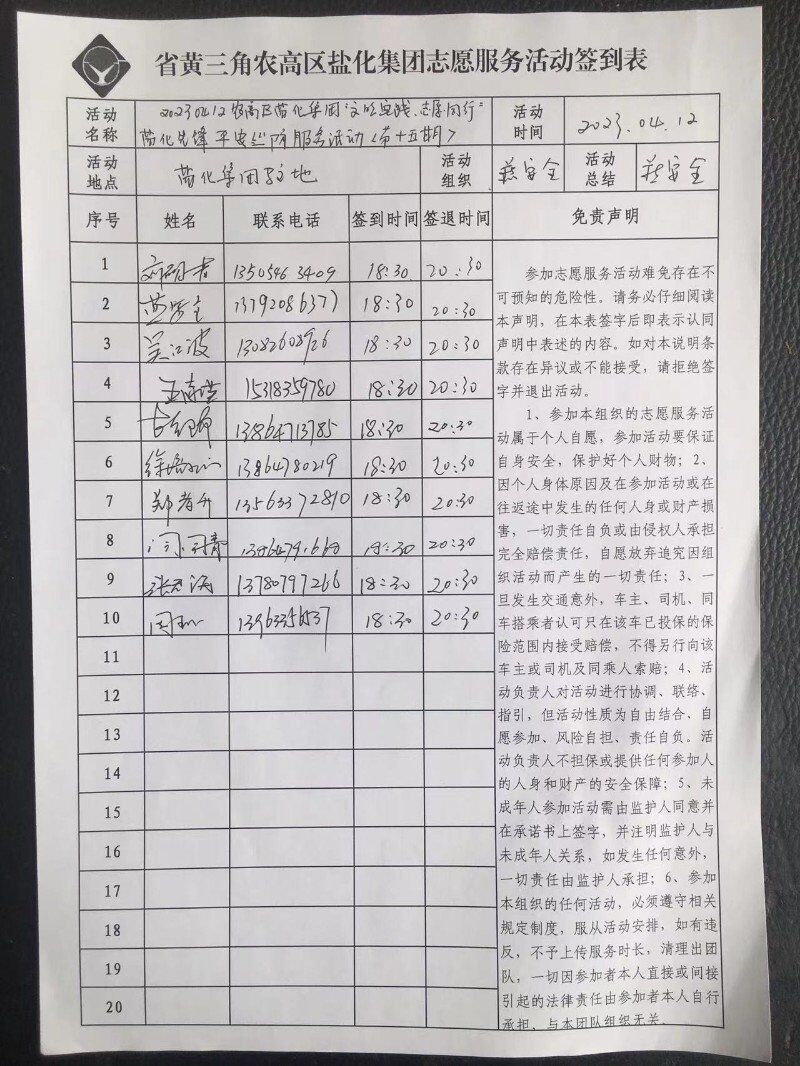 省黄三角农高区盐化集团志愿服务活动签到表
活动名称
2023.04.12农高区盐化集团"文明实践、志愿同行"
盐化先锋平安巡防服务活动(第十五期)
活动时间
2023.04.12
活动地点
盐化集团驻地
活动组织
安全
活动总结
安全
序号 姓名 联系电话 签到时间 签退时间 免责声明
1 13505463409 18:30 20:30
2 13792086377 18:30 20:30
3 吴江波 13082608926 18:30 20:30
4 15318359780 18:30 20:30
5 13864713785 18:30 20:30
6 徐 13864780219 18:30 20:30
7 郑 13563372810 18:30 20:30
8 18:30 20:30
9 张 13780797266 18:30 20:30
10 周 13963356537 18:30 20:30
11
12
13
14
15
16
17
18
19
20
参加志愿服务活动难免存在不
可预知的危险性。请务必仔细阅读
本声明，在本表签字后即表示认同
声明中表述的内容。如对本说明条
款存在异议或不能接受，请拒绝签
字并退出活动。
1、参加本组织的志愿服务活
动属于个人自愿，参加活动要保证
自身安全，保护好个人财物；2、
因个人身体原因及在参加活动或在
往返途中发生的任何人身或财产损
害，一切责任自负或由侵权人承担
完全赔偿责任，自愿放弃追究因组
织活动而产生的一切责任；3、一
旦发生交通意外，车主、司机、同
车搭乘者认可只在该车已投保的保
险范围内接受赔偿，不得另行向该
车主或司机及同乘人索赔；4、活
动负责人对活动进行协调、联络、
指引，但活动性质为自由结合、自
愿参加、风险自担、责任自负。活
动负责人不担保或提供任何参加人
的人身和财产的安全保障；5、未
成年人参加活动需由监护人同意并
在承诺书上签字，并注明监护人与
未成年人关系，如发生任何意外，
一切责任由监护人承担；6、参加
本组织的任何活动，必须遵守相关
规定制度，服从活动安排，如有违
反，不予上传服务时长，清理出团
队，一切因参加者本人直接或间接
引起的法律责任由参加者本人自行
承担，与本团队组织无关。